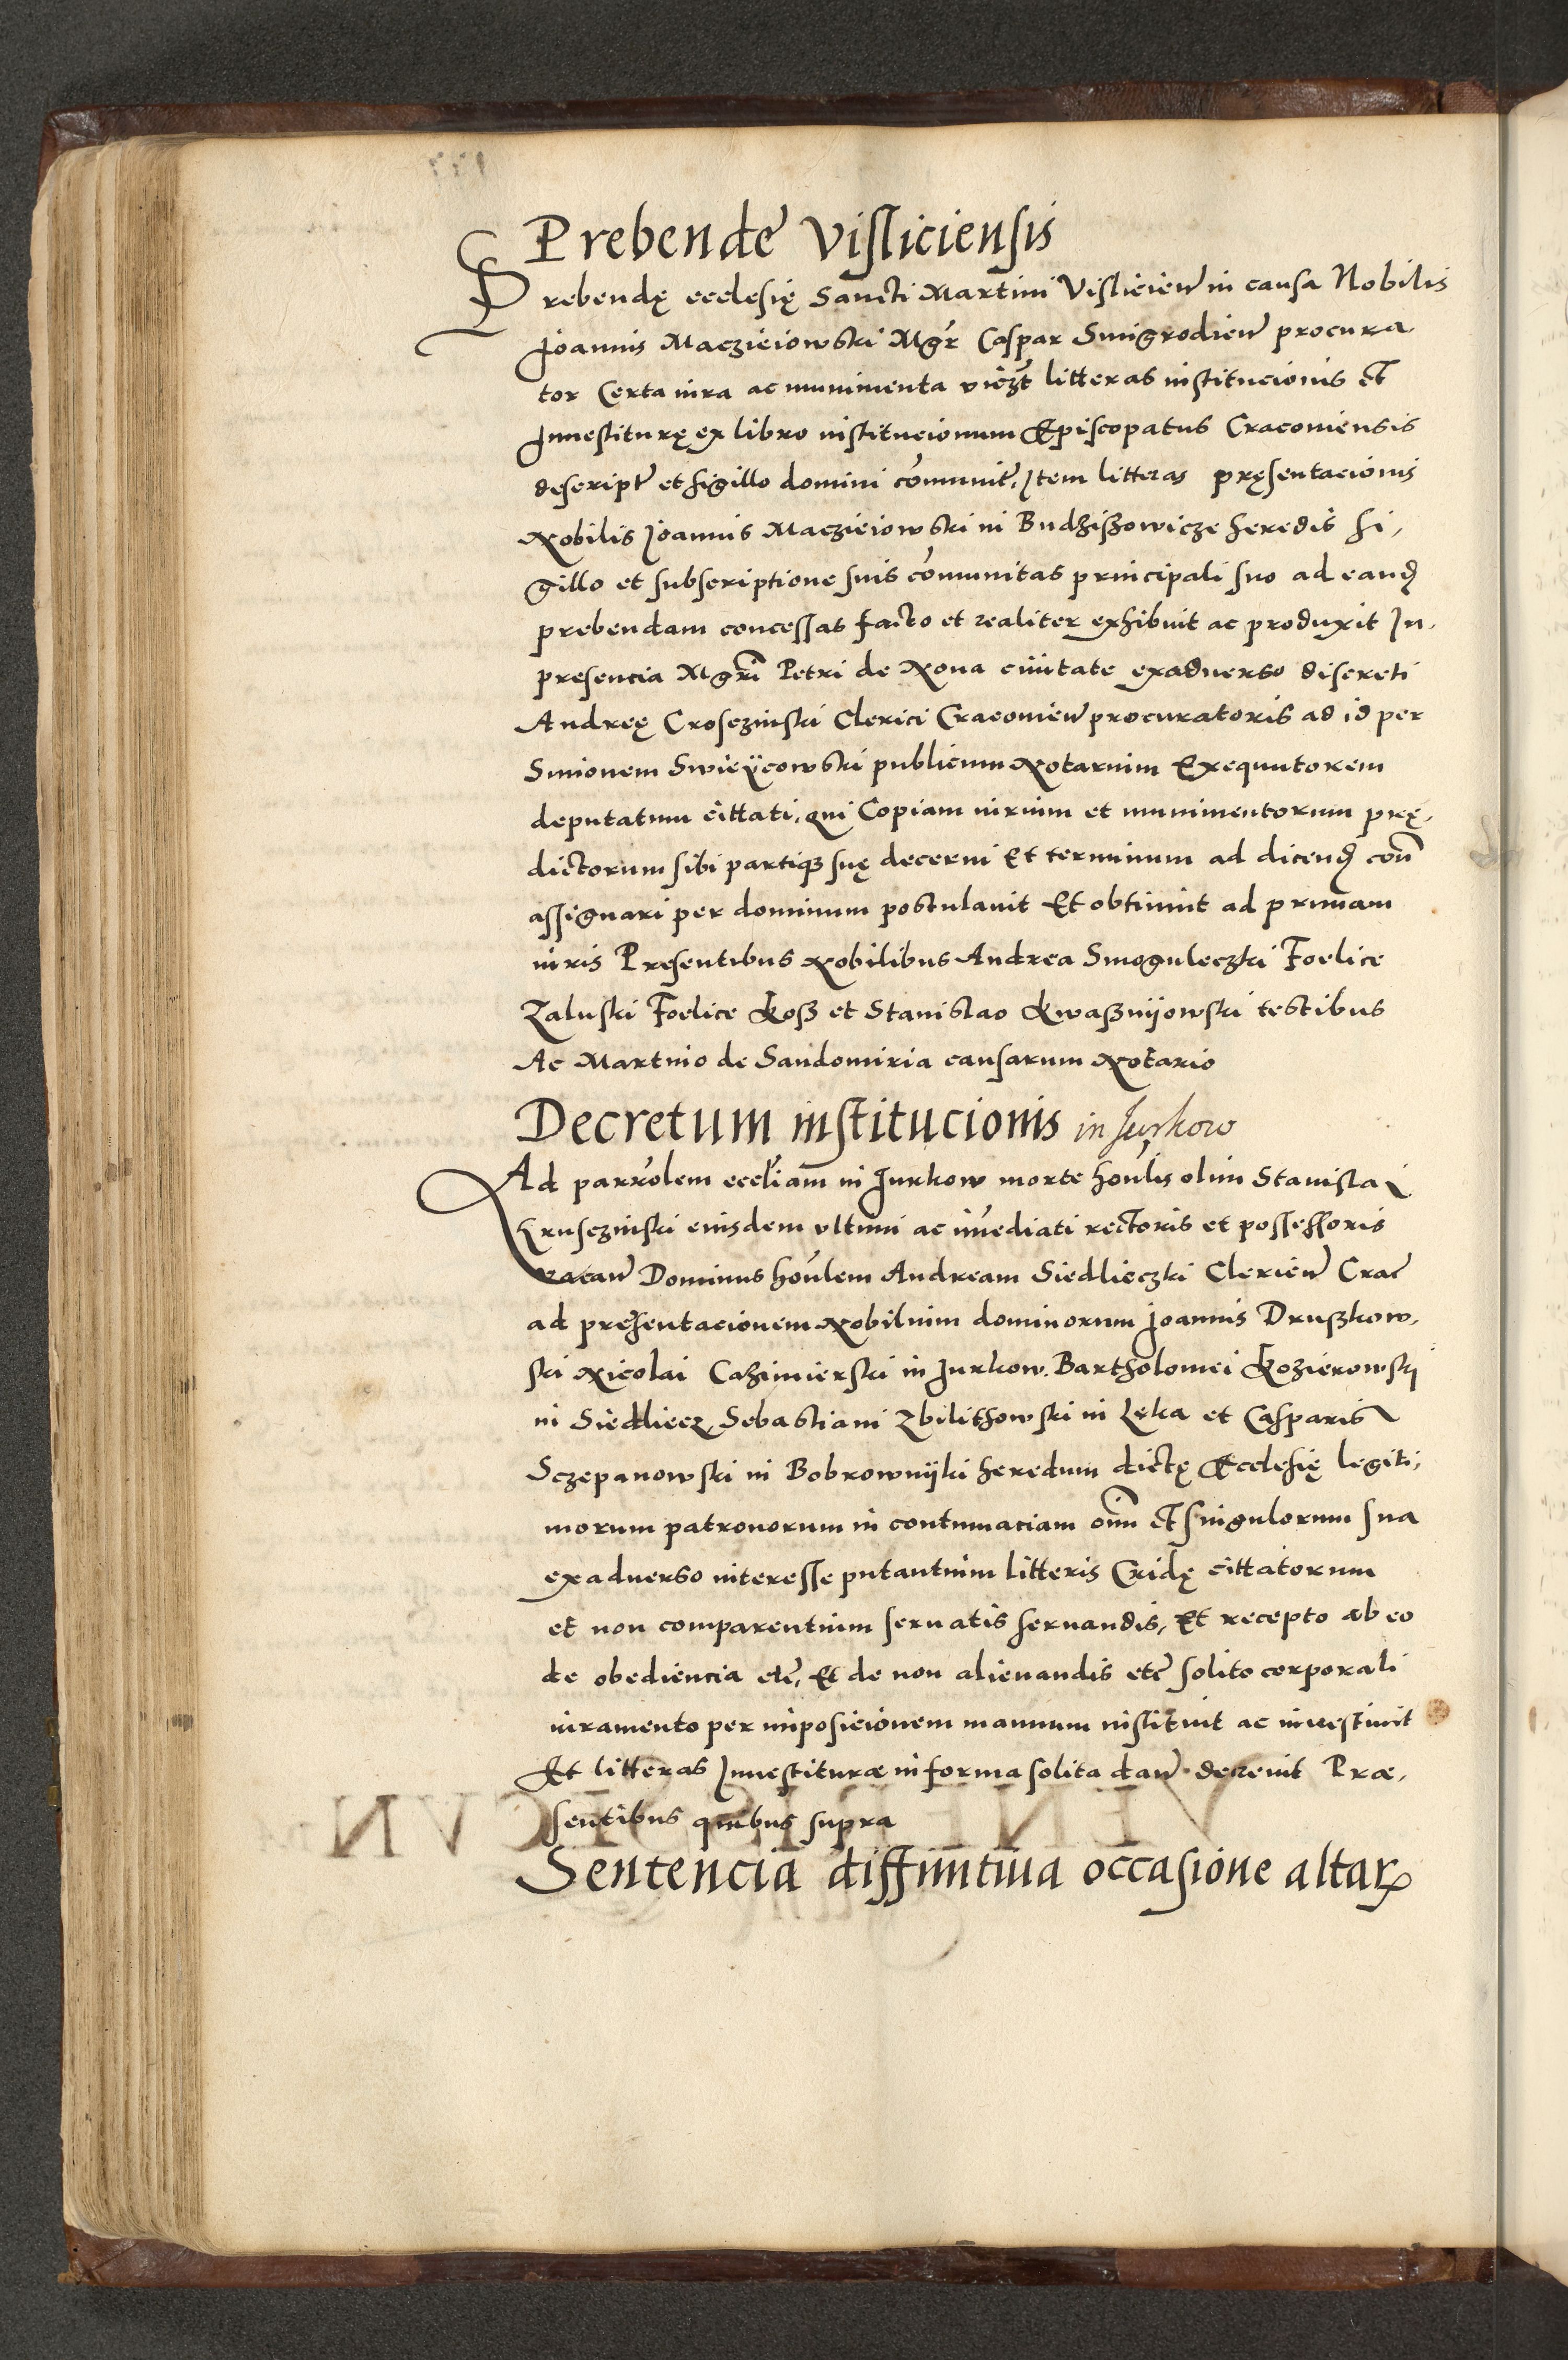 Prebende Visliciensis
Prebendę ecclesię Sancti Martini Vislicien̄ in causa Nobilis
Joannis Maczieiowski Mgr̄ Caspar Smigrodien̄ procura
tor Certa iura ac munimenta vicz̄t litteras institucionis et
Inuestiturę ex libro institucionum Episcopatus Cracouiensis
descript̄ et sigillo domini co̅munit̄, Item litteras pręsentacionis
Nobilis Joannis Maczieiowski in Budziszowicze heredis si,
gillo et subscriptione suis co̅munitas principali suo ad eand̄
prebendam concessas facto et realiter exhibuit ac produxit In,
presencia Mgr̄i Petri de Noua ciuitate exaduerso discreti
Andreę Crosczinski Clerici Cracouien̄ procuratoris ad id per
Simonem Swieÿcowski publicum Notarium Exequutorem
deputatum cittati, qui Copiam iurium et munimentorum prę,
dictorum sibi partiq3 suę decerni Et terminum ad dicend̄ con̄
assignari per dominum postulauit Et obtinuit ad primam
iuris Presentibus Nobilibus Andrea Smoguleczki Foelice
Zaluski Foelice Kosz et Stanislao Kwasznijowski testibus
Ac Martino de Sandomiria causarum Notario
Decretum institucionis in Jurkow
Ad parr̄olem eccl̄iam in Jurkow morte hon̄lis olim Stanislai
Krusczinski eiusdem vltimi ac im̄ediati rectoris et possessoris
vacan̄ Dominus hon̄lem Andream Siedlieczki Clericu̅ Crac̄
ad presentacionem Nobilium dominorum Joannis Druszkow,
ski Nicolai Cazimierski in Jurkow. Bartholomei Kozierowskj
in Siedliecz, Sebastiani Zbilithowski in Lęka et Casparis
Sczepanowski in Bobrownijki heredum dictę Ecclesię legiti,
morum patronorum in contumaciam om̄ et singulorum sua
exaduerso interesse putantium litteris Cridę cittatorum
et non comparentium seruatis seruandis, Et recepto ab eo
de obediencia etc̄, Et de non alienandis etc̄ solito corporali
iuramento per imposicionem manuum instituit ac inuestiuit
Et litteras Inuestiturae in forma solita dan̄ decreuit Prae,
sentibus quibus supra
Sentencia diffinitiua occasione altar̄